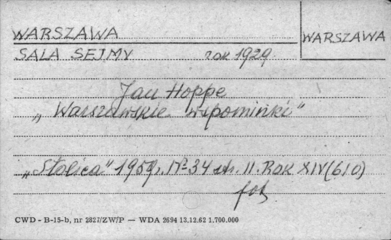 WARSZAWA
WARSZAWA
SALA SEJMY rok 1929
Jan Hoppe
„Warszawskie wspominki"
„Stolica" 1959r. Nr 34 str. 11. Rok XIV (610)
fot
CWD - B-15-b, nr 2827/ZW/P — WDA 2694 13.12.62 1.700.000